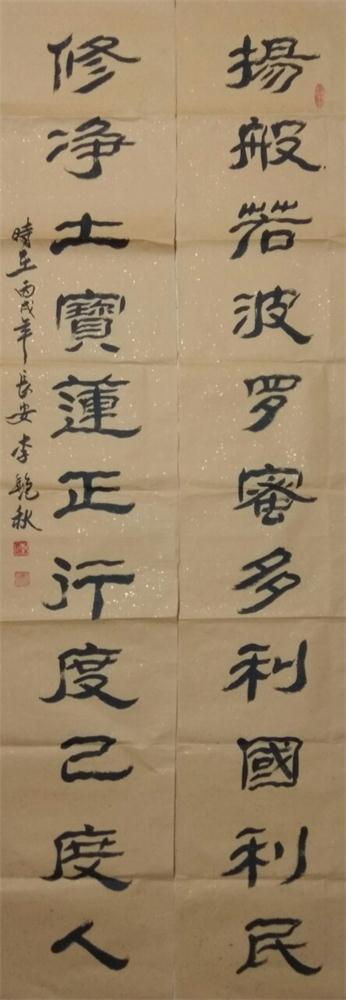 揚般若波罗蜜多利國利民
修净土寶蓮正行度己度人
時在丙戌年長安李艳秋